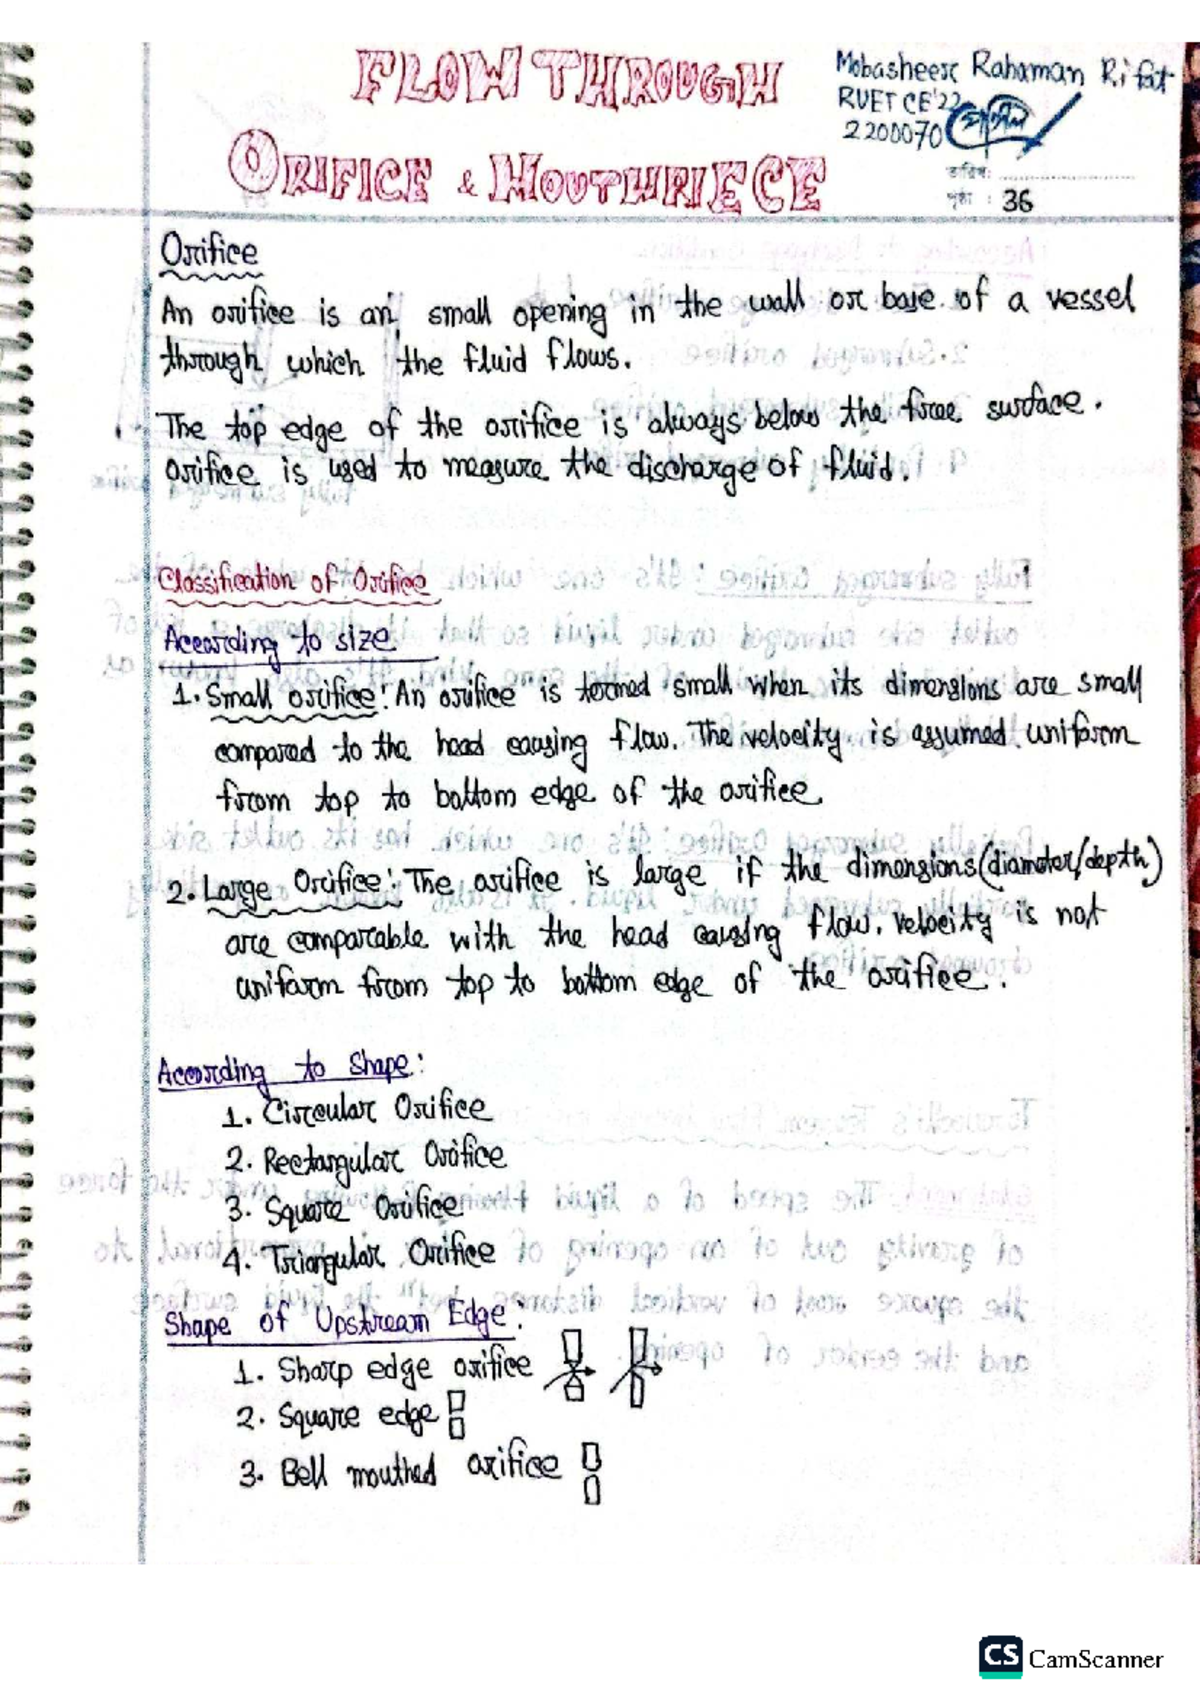 FLOW THROUGH
ORIFICE & MOUTHPIECE
Mobasheer Rahaman Rifat
RUET CE'22
2200070
তারিখ:
পৃষ্ঠা : 36
Orifice
An orifice is an small opening in the wall or base of a vessel
through which the fluid flows.
The top edge of the orifice is always below the free surface.
Orifice is used to measure the discharge of fluid.
Classification of Orifice
According to size
1. Small orifice: An orifice is termed small when its dimensions are small
compared to the head causing flow. The velocity is assumed uniform
from top to bottom edge of the orifice.
2. Large Orifice: The orifice is large if the dimensions (diameter/depth)
are comparable with the head causing flow. Velocity is not
uniform from top to bottom edge of the orifice.
According to Shape:
1. Circular Orifice
2. Rectangular Orifice
3. Square Orifice
4. Triangular Orifice
Shape of Upstream Edge:
1. Sharp edge orifice
2. Square edge
3. Bell mouthed orifice
CS CamScanner